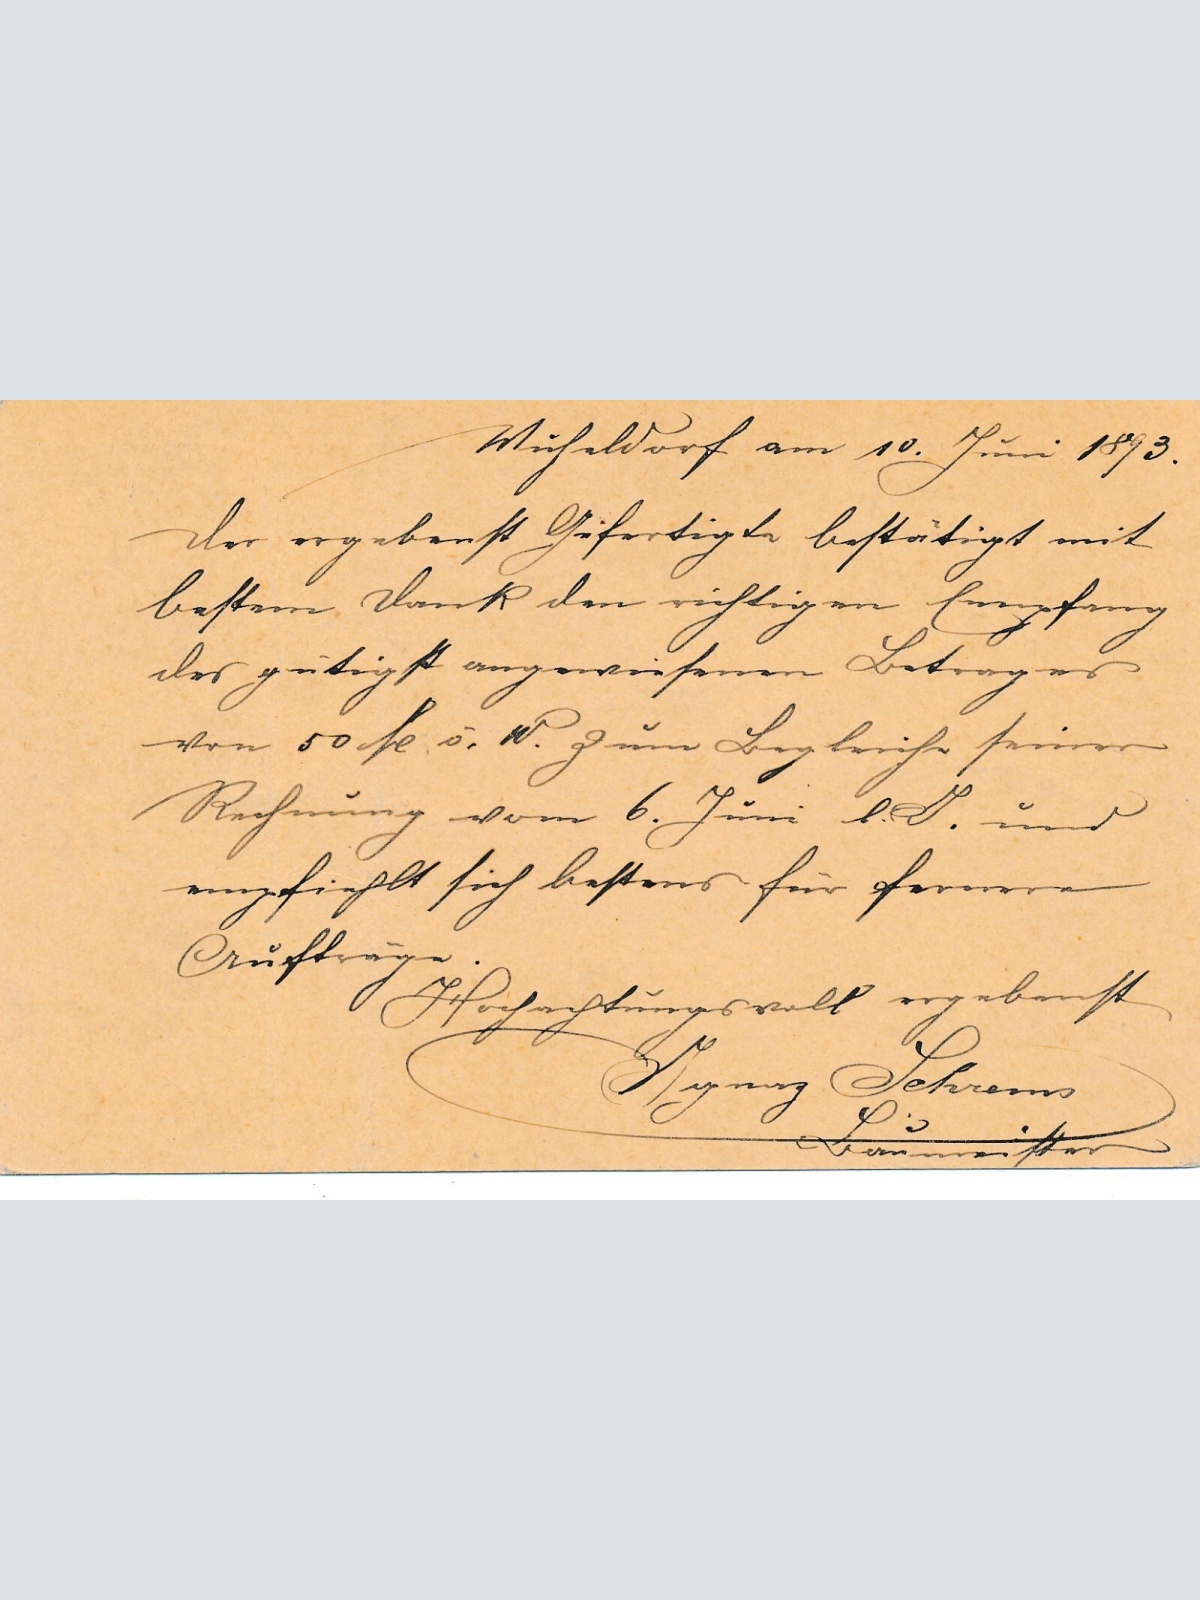 Wuheldorf am 10. Juni 1893.
Der ergebenst Gefertigte bestätigt mit
bestem Dank den richtigen Empfang
des gütigst angewiesenen Betrages
von 50 fl ö. W. zum Begleiche seiner
Rechnung vom 6. Juni l. J. und
empfiehlt sich bestens für fernere
Aufträge.
Hochachtungsvoll ergebenst
Ignaz Schrems
Baumeister